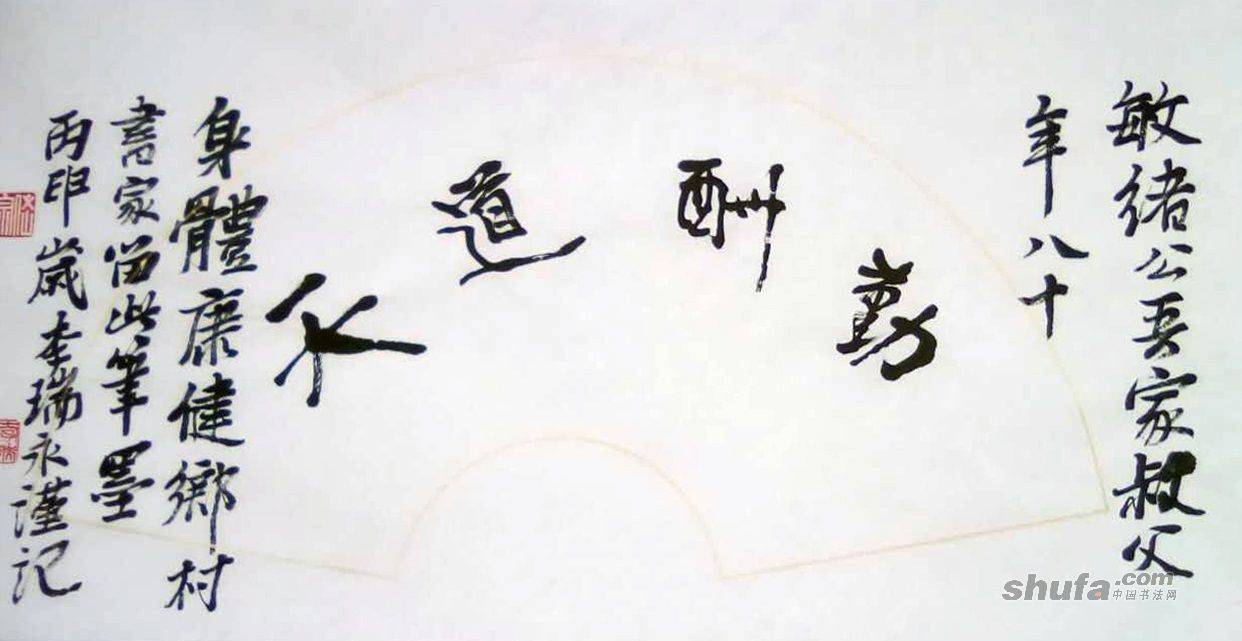 敏緒公吾家叔父
年八十
天道酬勤
身體康健鄉村
書家留此筆墨
丙申歲李瑞永謹記
shufa.com
中国书法网